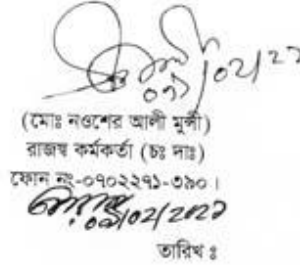 ০৯/০২/২২
(মোঃ নওশের আলী মুন্সী)
রাজস্ব কর্মকর্তা (চঃ দাঃ)
ফোন নং-০৭০২২৭১-৩৯০।
০৯/০২/২০২২
তারিখ ঃ